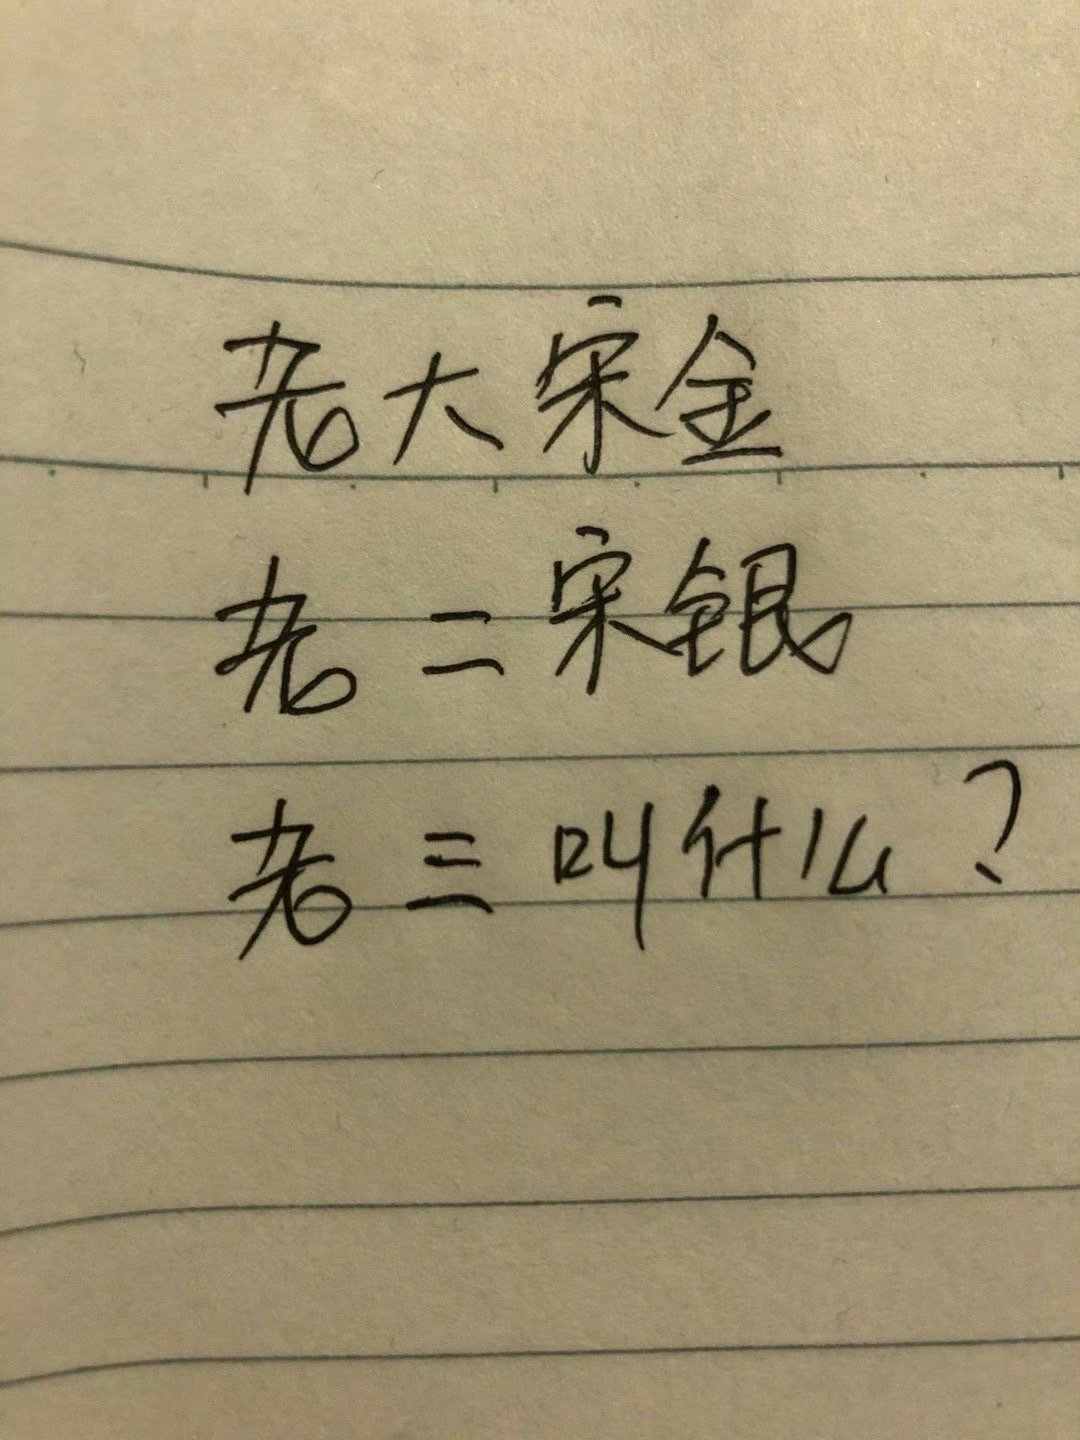 老大宋金
老二宋银
老三叫什么?